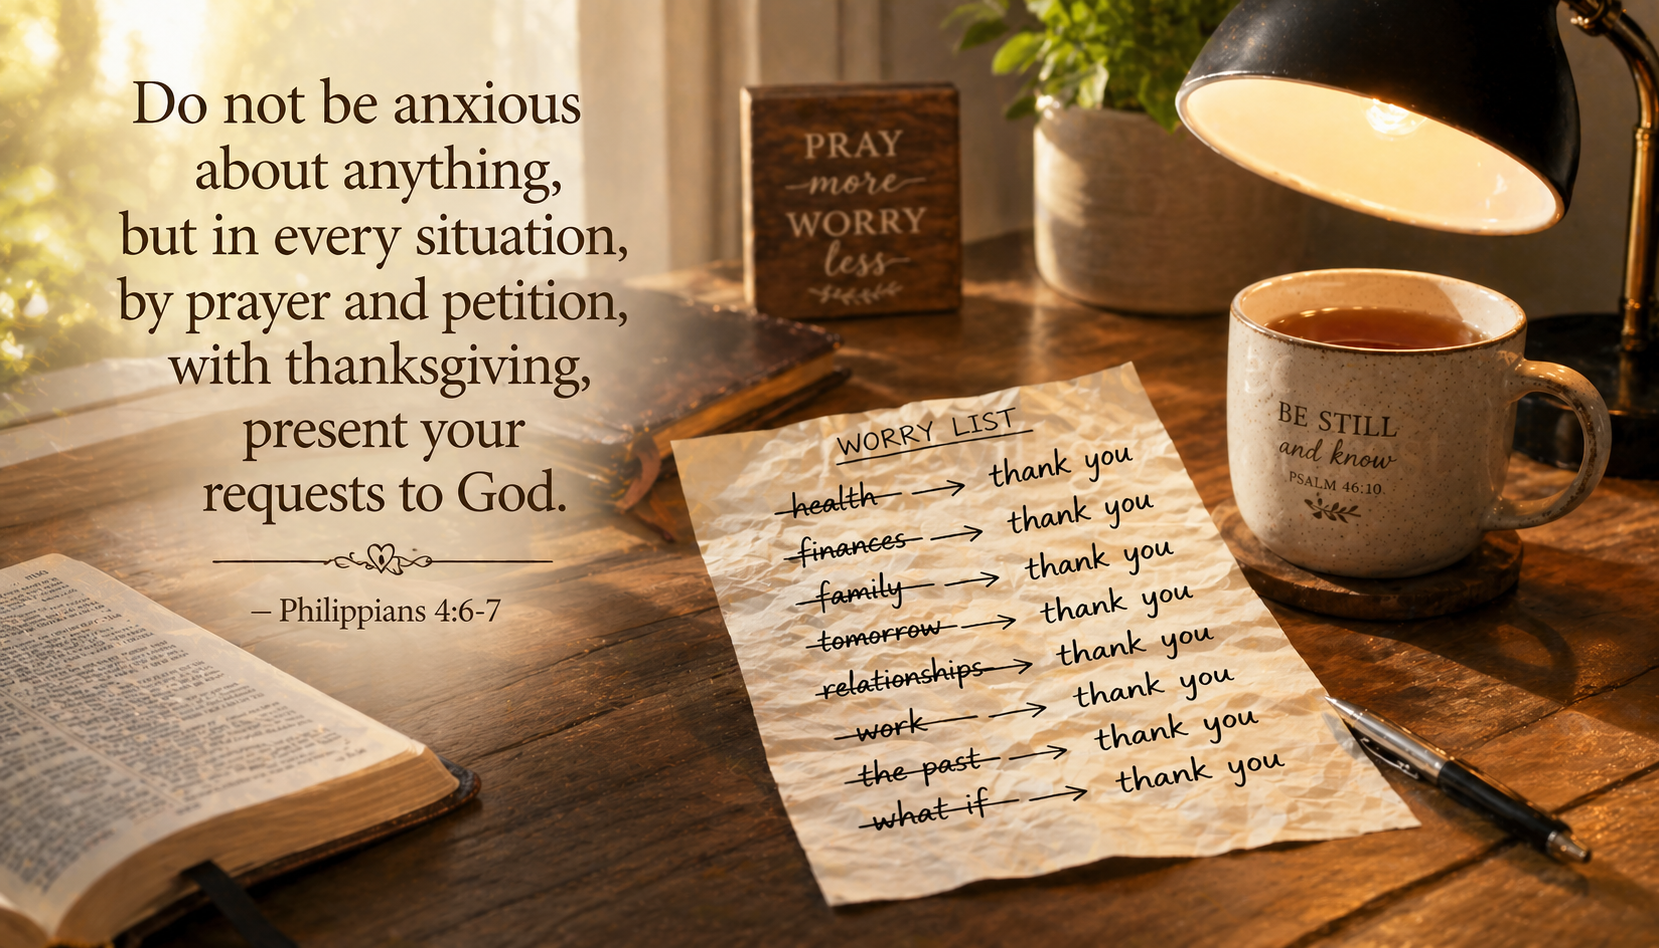 Do not be anxious
about anything,
but in every situation,
by prayer and petition,
with thanksgiving,
present your
requests to God.
– Philippians 4:6-7
PRAY
more
WORRY
less
WORRY LIST
health → thank you
finances → thank you
family → thank you
tomorrow → thank you
relationships → thank you
work → thank you
the past → thank you
what if → thank you
BE STILL
and know
PSALM 46:10